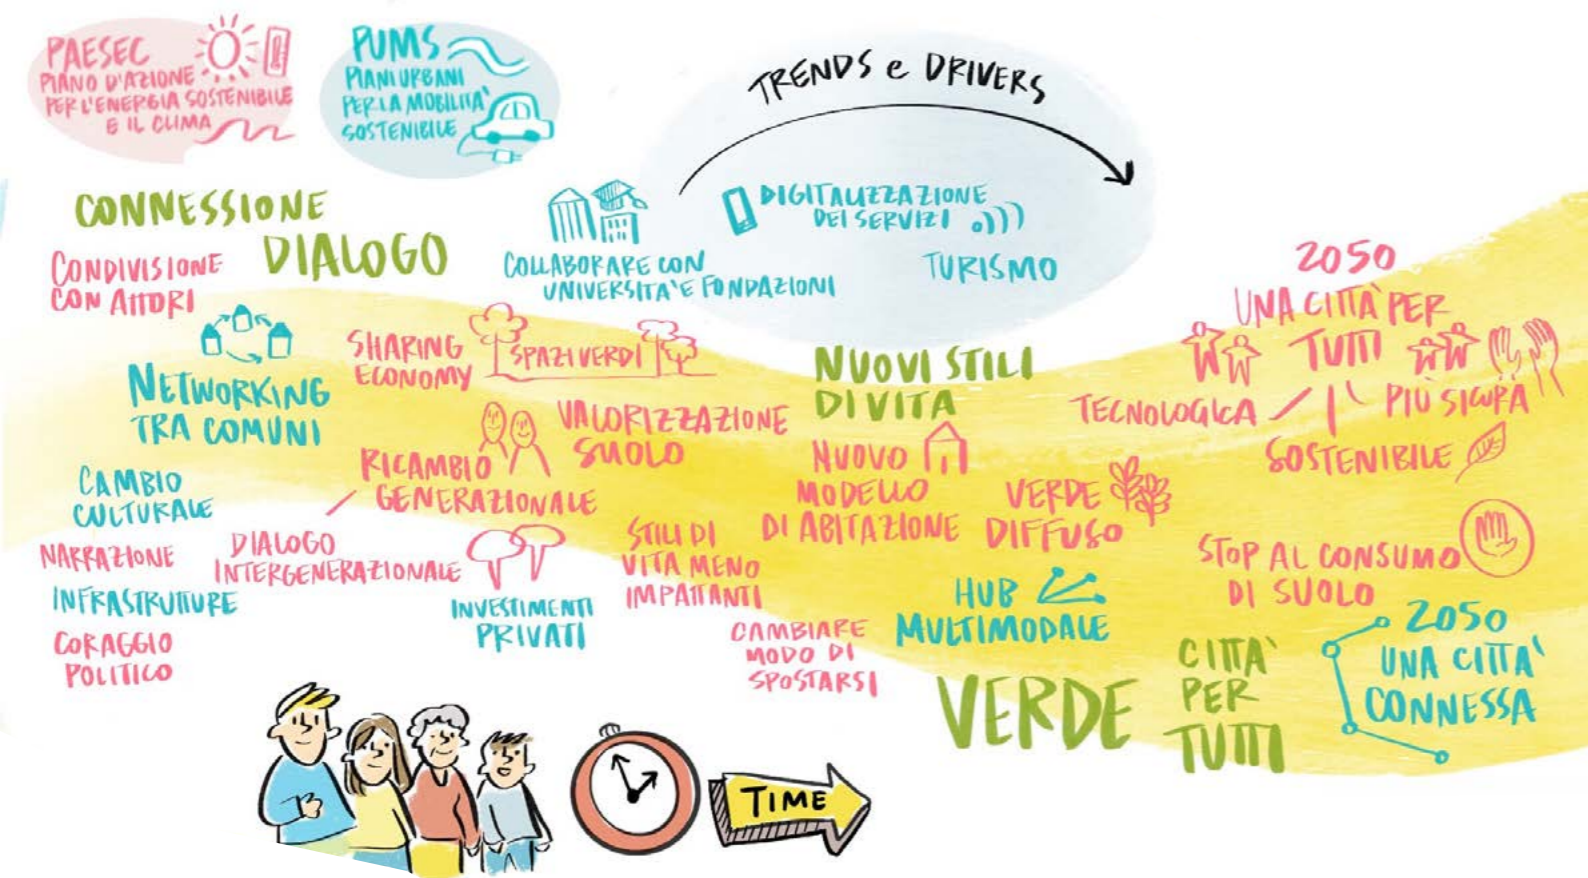 PAESEC
PIANO D'AZIONE
PER L'ENERGIA SOSTENIBILE
E IL CLIMA
PUMS
PIANI URBANI
PER LA MOBILITA'
SOSTENIBILE
TRENDS e DRIVERS
CONNESSIONE
DIALOGO
CONDIVISIONE
CON ATTORI
COLLABORARE CON
UNIVERSITA' E FONDAZIONI
DIGITALIZZAZIONE
DEI SERVIZI
TURISMO
NETWORKING
TRA COMUNI
SHARING
ECONOMY
SPAZI VERDI
VALORIZZAZIONE
SUOLO
RICAMBIO
GENERAZIONALE
CAMBIO
CULTURALE
NARRAZIONE
INFRASTRUTTURE
CORAGGIO
POLITICO
DIALOGO
INTERGENERAZIONALE
INVESTIMENTI
PRIVATI
STILI DI
VITA MENO
IMPATTANTI
CAMBIARE
MODO DI
SPOSTARSI
NUOVI STILI
DI VITA
NUOVO
MODELLO
DI ABITAZIONE
VERDE
DIFFUSO
HUB
MULTIMODALE
VERDE
2050
UNA CITTÀ PER
TUTTI
TECNOLOGICA
PIÙ SICURA
SOSTENIBILE
STOP AL CONSUMO
DI SUOLO
CITTA'
PER
TUTTI
2050
UNA CITTA'
CONNESSA
TIME